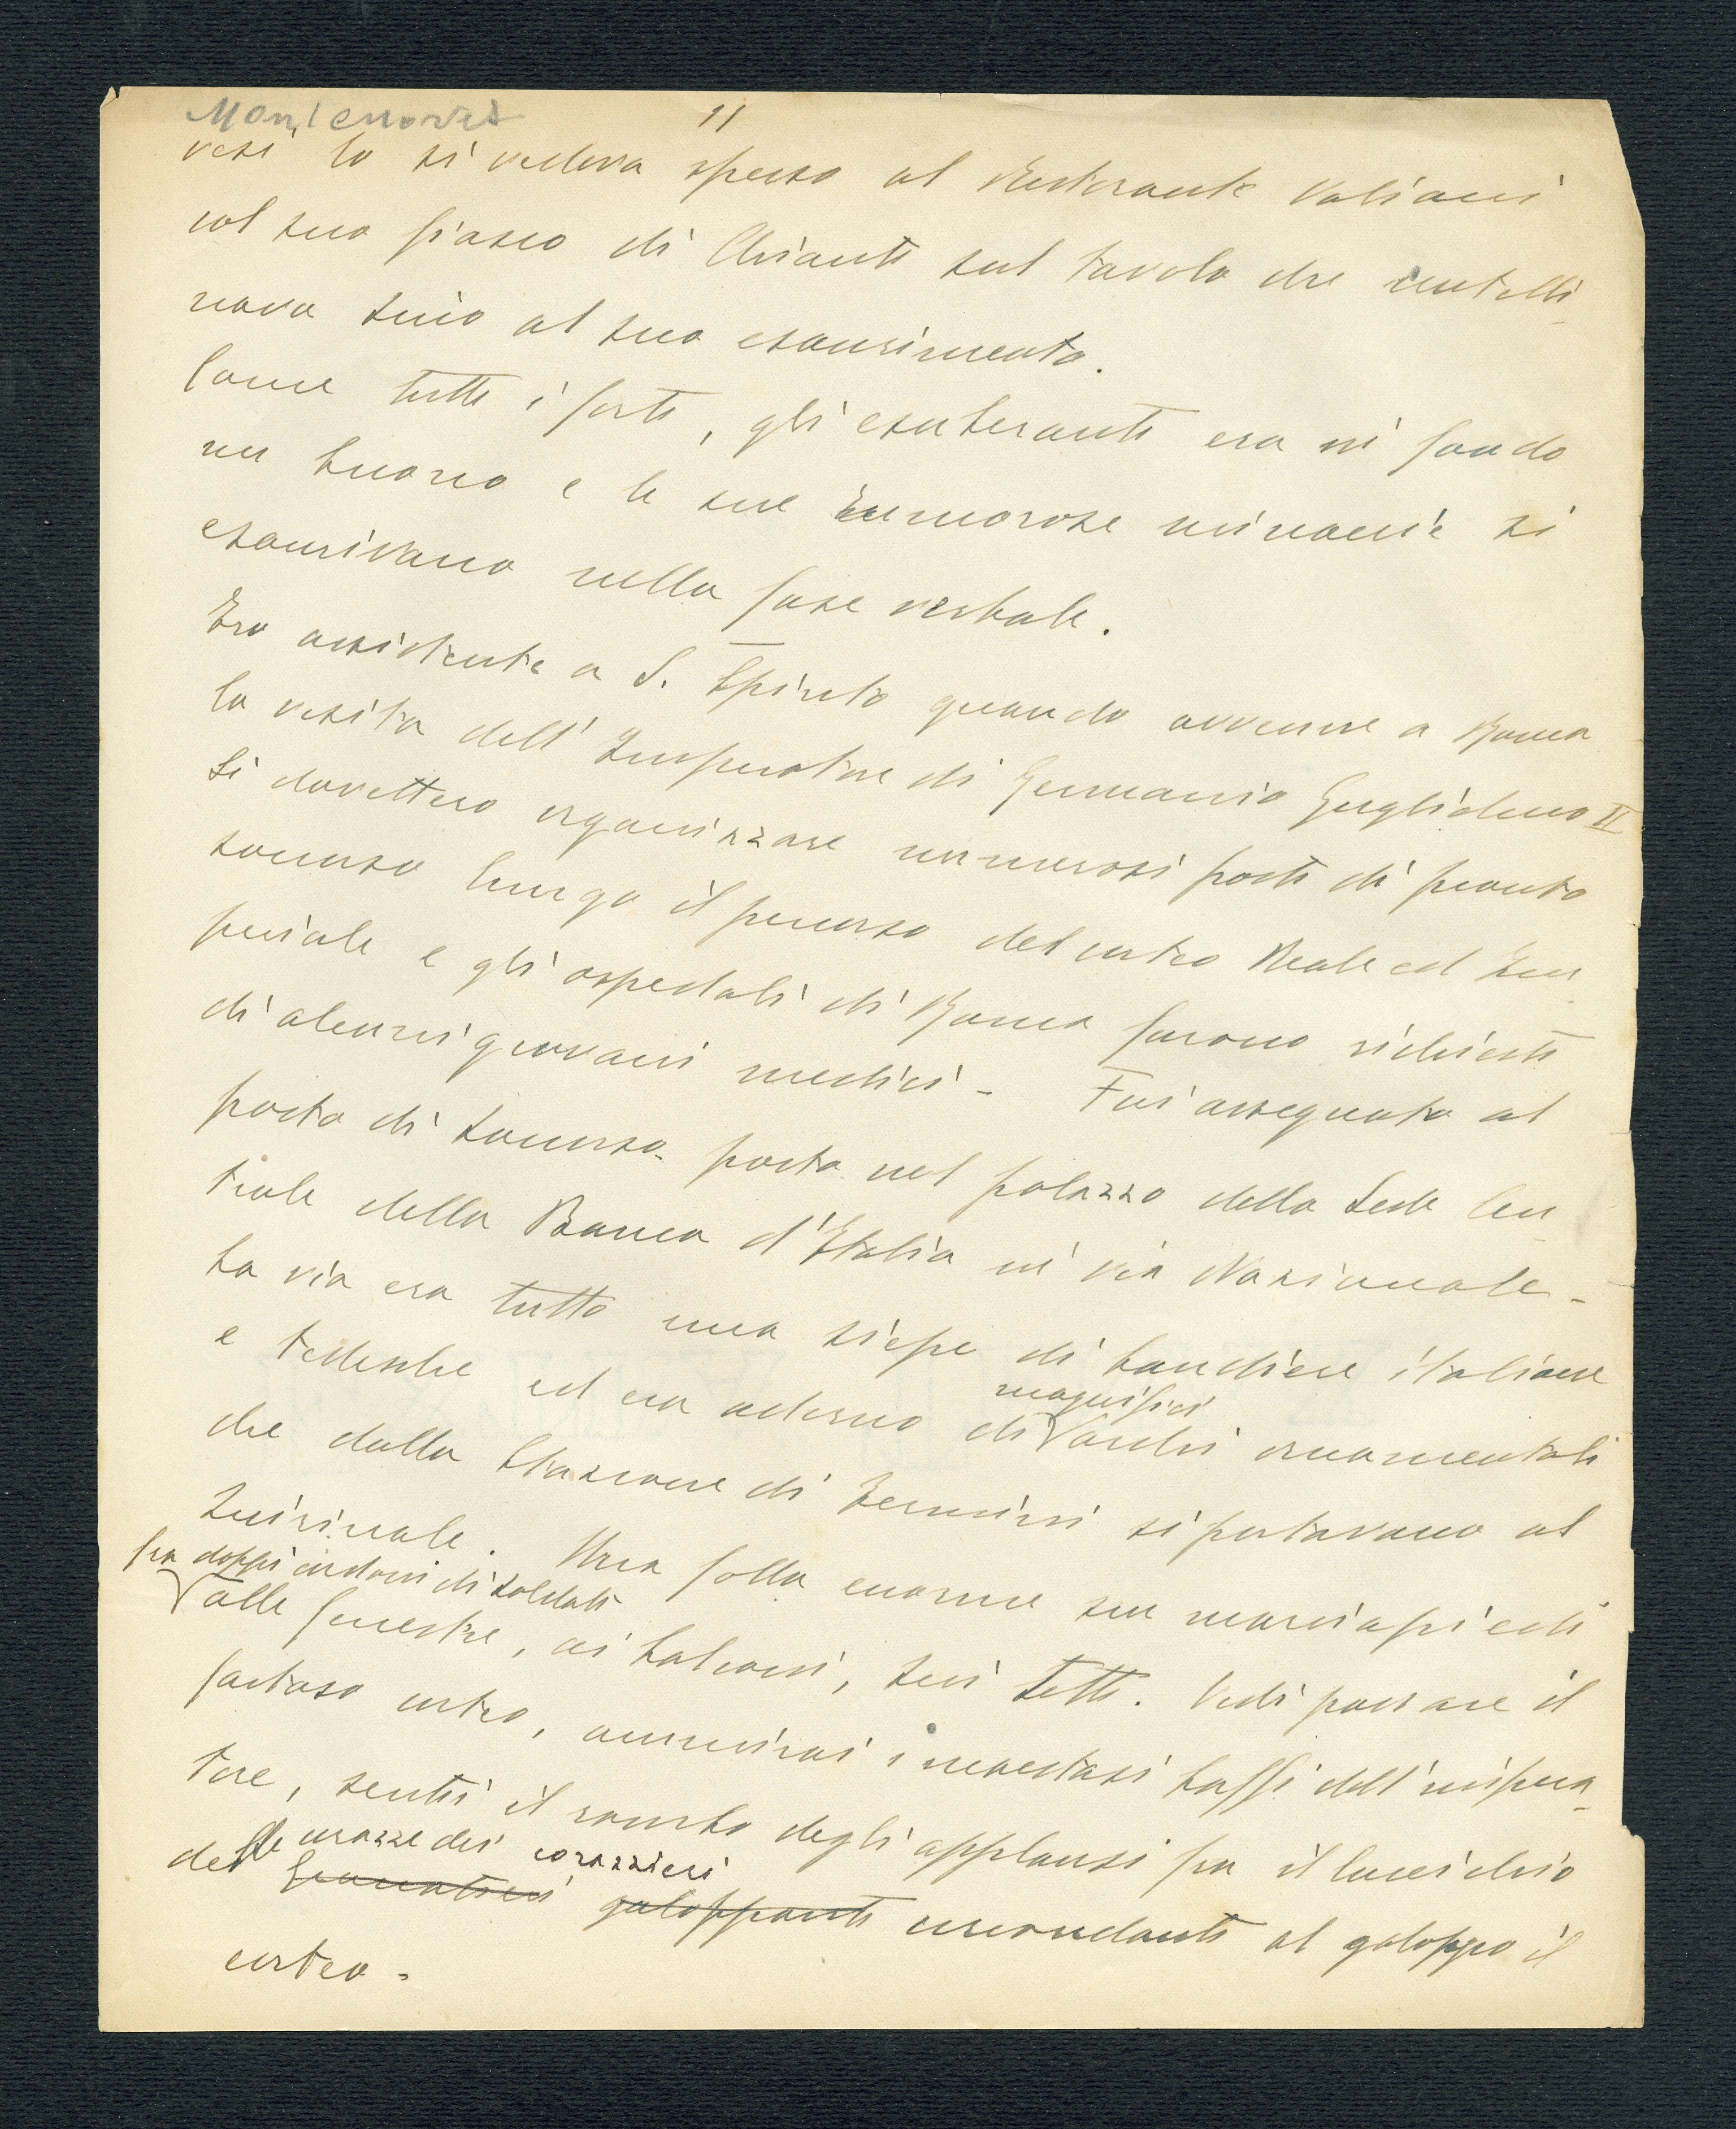 Montenovesi
11
vesi lo si vedeva spesso al Ristorante Valiani
col suo fiasco di Chianti sul tavolo che centelli-
nava sino al suo esaurimento.
Come tutti i forti, gli esuberanti era in fondo
un buono e le sue rumorose minaccie si
esaurivano nella fase verbale.
Ero assistente a S. Spirito quando avvenne a Roma
la visita dell'Imperatore di Germania Guglielmo II
Si dovettero organizzare numerosi posti di pronto
soccorso lungo il percorso del corteo Reale ed Im
periale e gli ospedali di Roma furono richiesti
di alcuni giovani medici - Fui assegnato al
posto di soccorso posto nel palazzo della Sede Cen
trale della Banca d'Italia in via Nazionale -
La via era tutto una siepe di bandiere italiane
e tedesche ed era adorno di archi ornamentali
magnifici
che dalla Stazione di Termini si portavano al
Quirinale. Una folla enorme sui marciapiedi
fra doppi cordoni di soldati
alle finestre, ai balconi, sui tetti. Vidi passare il
fastoso corteo, ammirai i maestosi baffi dell'impera-
tore, sentii il rombo degli applausi fra il luccichio
delle corazze dei corazzieri
granatieri galoppanti circondanti al galoppo il
corteo -